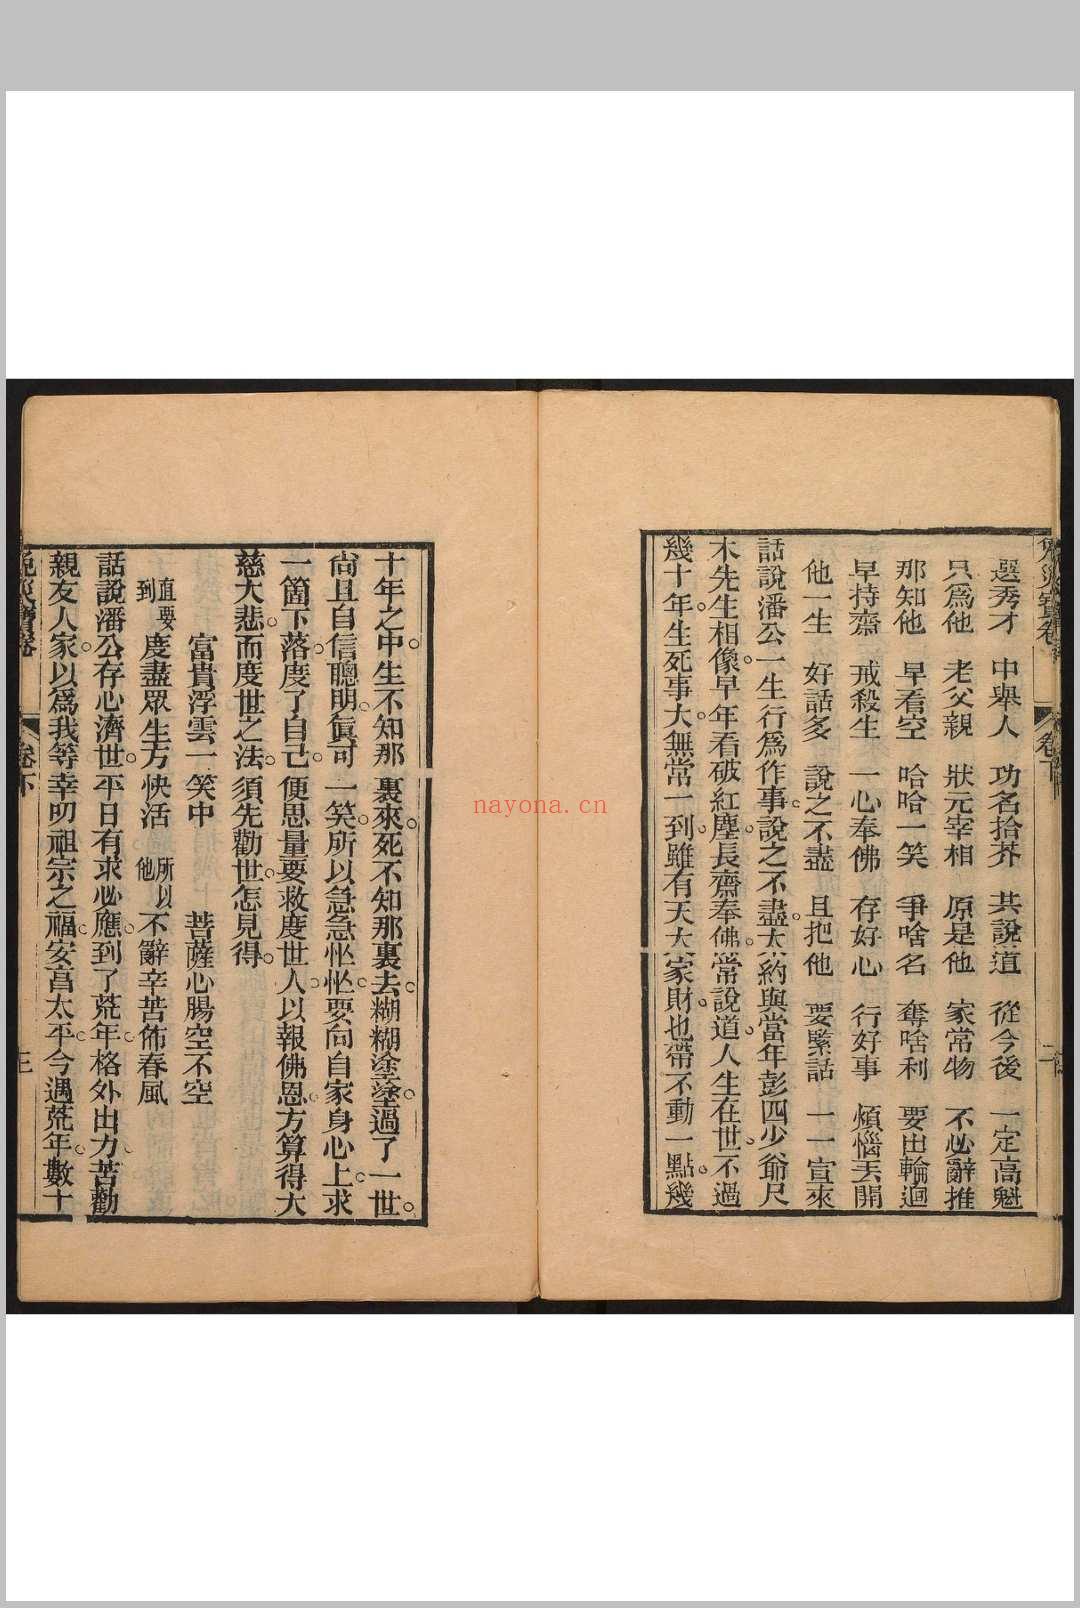 免災寶卷 卷下 二
選秀才 中舉人 功名拾芥 共說道 從今後 一定高魁
只爲他 老父親 狀元宰相 原是他 家常物 不必辭推
那知他 早看空 哈哈一笑 爭啥名 奪啥利 要出輪迴
早持齋 戒殺生 一心奉佛 存好心 行好事 煩惱丟開
他一生 好話多 說之不盡 且把他 要緊話 一一宣來
話說潘公一生行爲作事。說之不盡。大約與當年彭四少爺尺
木先生相像。早年看破紅塵。長齋奉佛。常說道。人生在世。不過
幾十年。生死事大。無常一到。雖有天大家財。也帶不動一點。幾
十年之中。生不知那裏來。死不知那裏去。糊糊塗塗。過了一世。
尙且自信聰明。眞可一笑。所以急急忙忙。要向自家身心上。求
一箇下落。度了自己。便思量要救度世人。以報佛恩。方算得大
慈大悲。而度世之法。須先勸世。怎見得。
富貴浮雲一笑中 菩薩心腸空不空
直要到度盡眾生方快活 所以他不辭辛苦佈春風
話說潘公存心濟世。平日有求必應。到了荒年。格外出力。苦勸
親友人家。以爲我等幸叨祖宗之福。安享太平。今遇荒年。數十
免災寶卷 卷下 三
nayona.cn